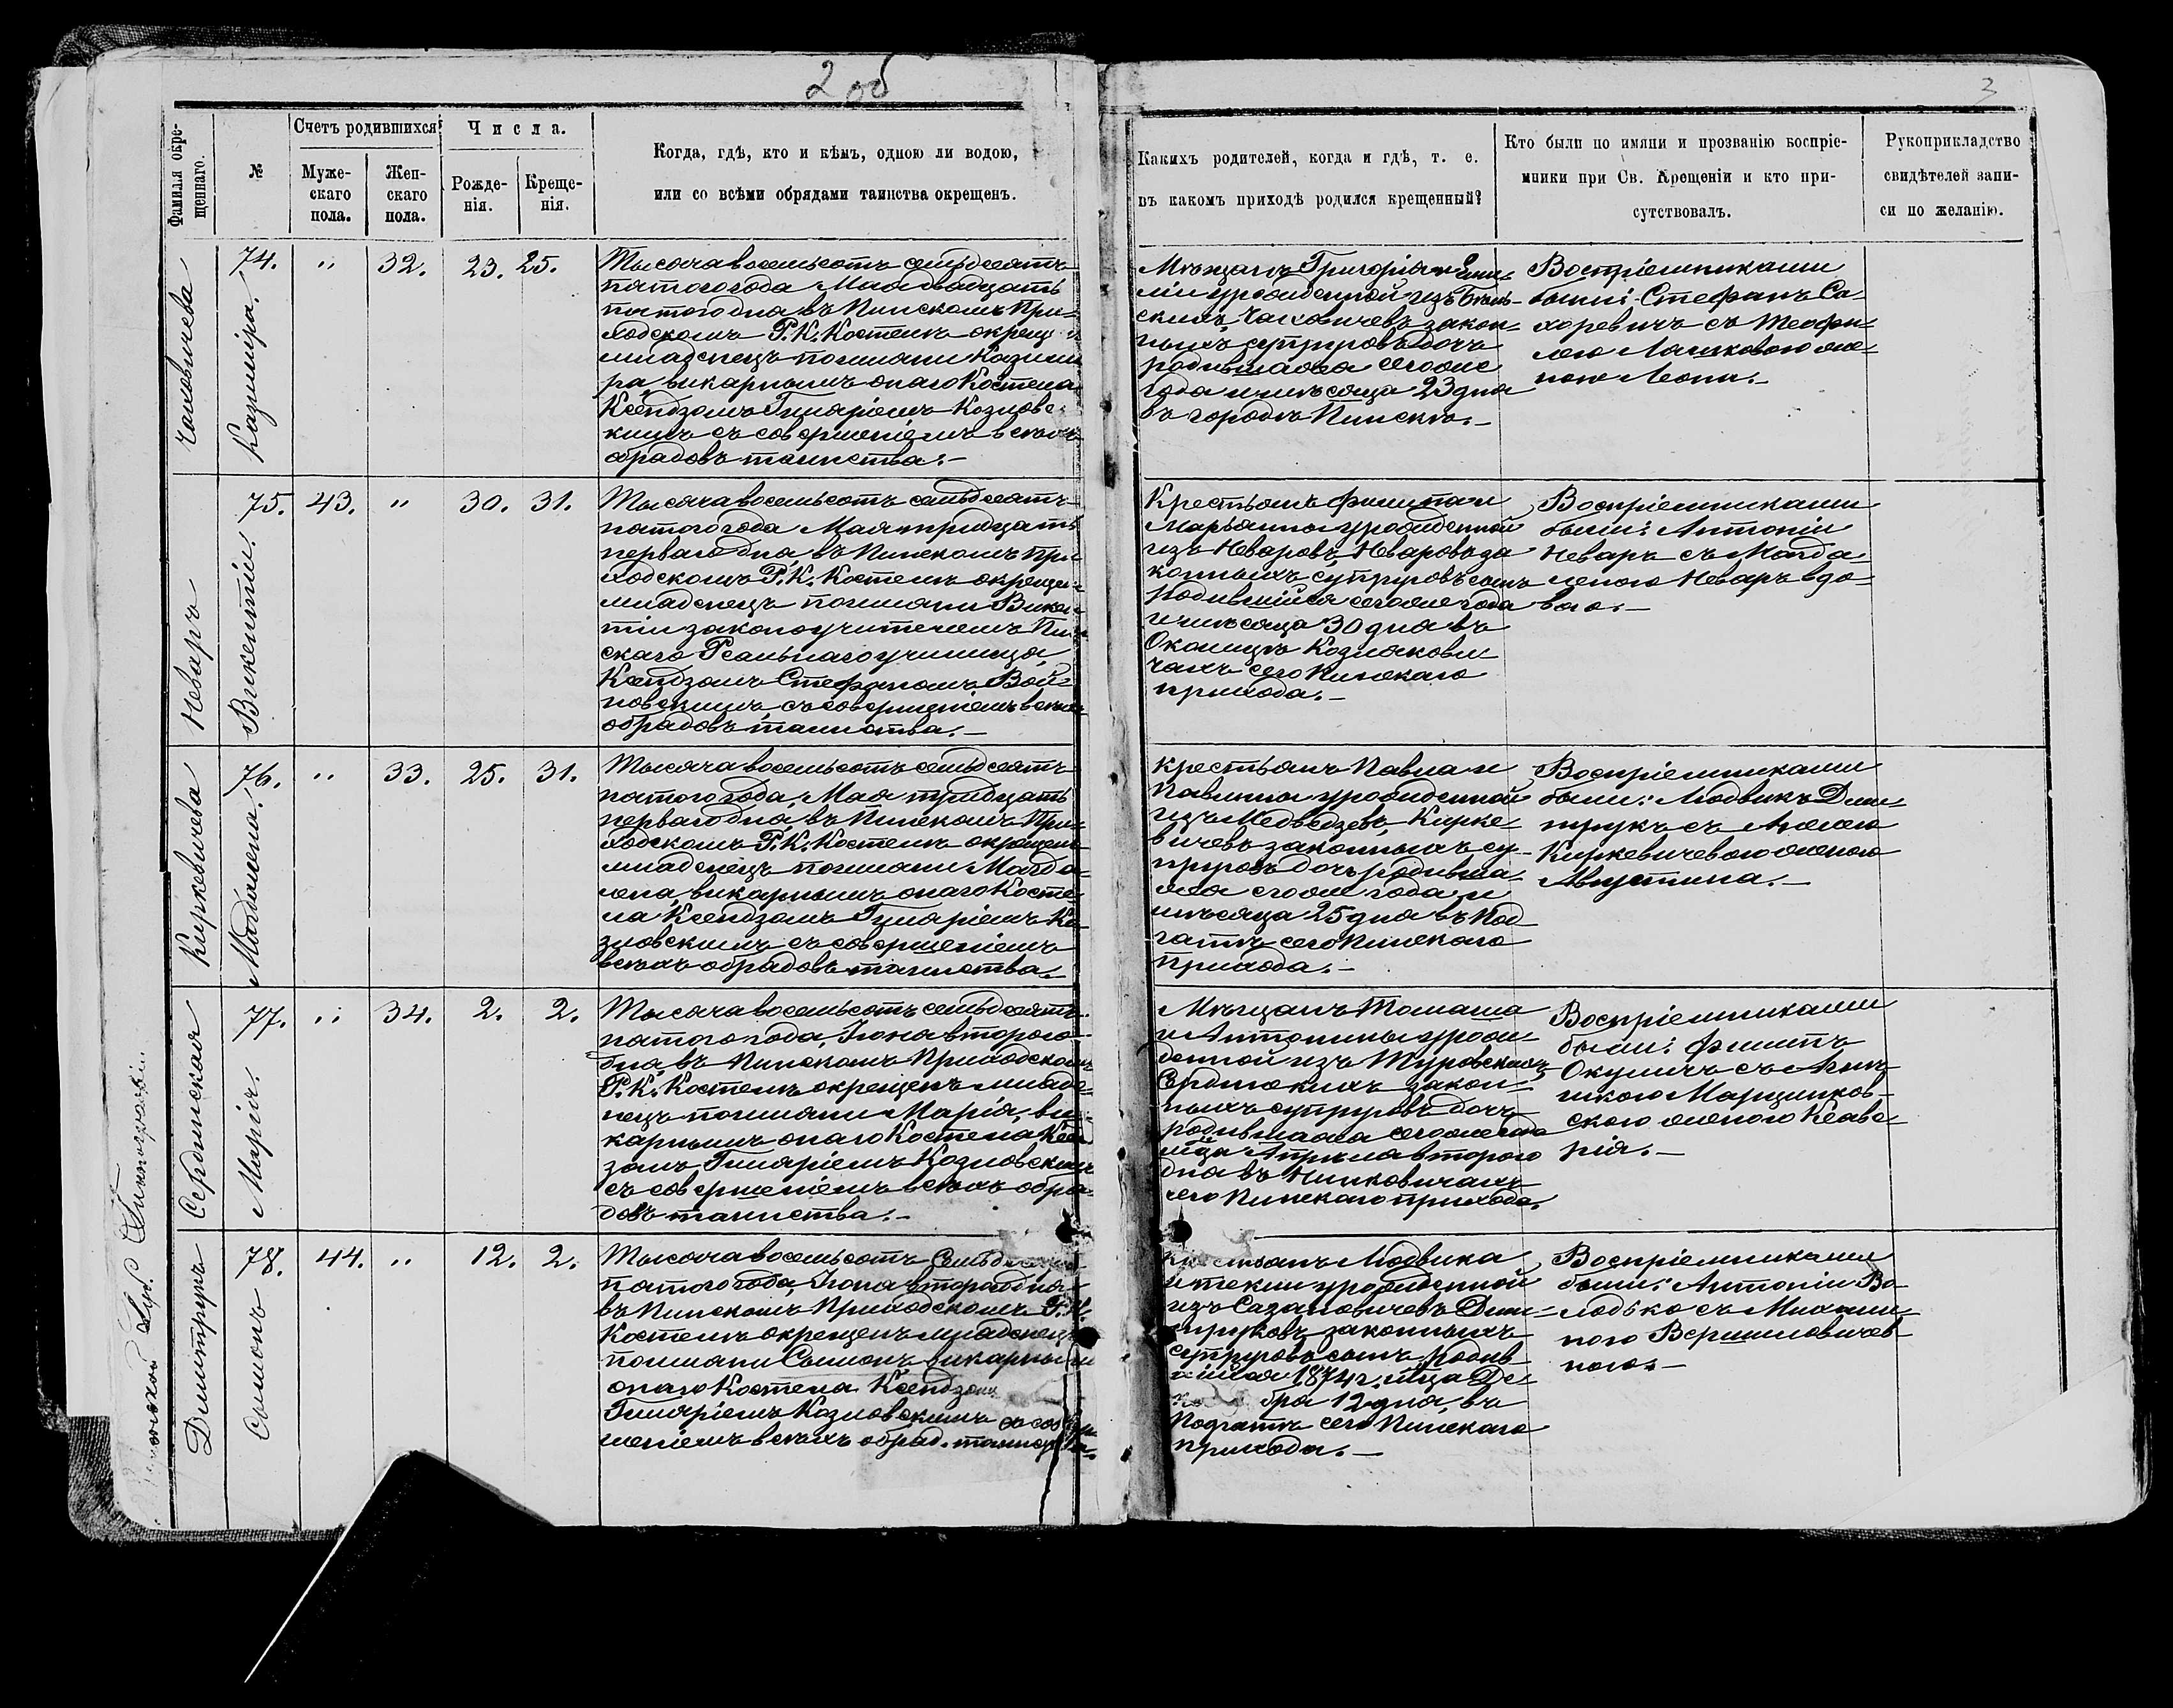 2 об
3
Фамилія окре-
щеннаго.
№
Счетъ родившихся
Муже-
скаго
пола.
Жен-
скаго
пола.
Числа.
Рожде-
нія.
Креще-
нія.
Когда, гдѣ, кто и кѣмъ, одною ли водою,
или со всѣми обрядами таинства окрещенъ.
Какихъ родителей, когда и гдѣ, т. е.
въ какомъ приходѣ родился крещенный?
Кто были по имяни и прозванію воспріе-
мники при Св. Крещеніи и кто при-
сутствовалъ.
Рукоприкладство
свидѣтелей запи-
си по желанію.
Чаховичева
Казимира.
74. " 32. 23. 25.
Тысяча восемьсотъ семьдесятъ
пятаго года Мая двадцать
пятаго дня въ Пинскомъ При-
ходскомъ Р. К. Костелѣ окрещ
младенецъ по имяни Казими
ра, викарнымъ онаго Костела
Ксендзомъ Гиляріемъ Козловс-
кимъ съ совершеніемъ всѣхъ
обрядовъ таинства.-
Мѣщанъ Григорія и
ліи урожденной изъ
скихъ, Чаховичевъ закон-
ныхъ супруговъ дочь
родившаяся сегоже
года и мѣсяца 23 дня
въ городѣ Пинскѣ.-
Воспріемниками
были: Стефанъ Са-
харевичъ съ Теофи-
лею же-
ною Леона.-
Неваръ
Викентій.
75. 43. " 30. 31.
Тысяча восемьсотъ семьдесятъ
пятаго года, Мая тридцать
перваго дня, въ Пинскомъ При
ходскомъ Р. К. Костелѣ окрещен-
младенецъ по имяни Викен-
тій законоучителемъ Пин-
скаго Реальнаго училища,
Ксендзомъ Стефаномъ Вой-
новскимъ, съ совершеніемъ всѣхъ
обрядовъ таинства.-
Крестьянъ Филипа и
Марьянны урожденной
изъ Неваровъ, Неваровъ за
конныхъ супруговъ сынъ
родившійся сегоже года
и мѣсяца 30 дня въ
Околицѣ Козлякови
чахъ сего Пинскаго
прихода.-
Воспріемниками
были: Антоній
Неваръ съ Магда-
леною Неваръ вдо-
вою.-
Киркевичева
Магдалена.
76. " 33. 25. 31.
Тысяча восемьсотъ семьдесятъ
пятаго года, Мая тридцать
перваго дня, въ Пинскомъ При-
ходскомъ Р. К. Костелѣ окрещенъ
младенецъ по имяни Магда-
лена, викарнымъ онаго Косте-
ла Ксендзомъ Гиляріемъ Ко-
зловскимъ съ совершеніемъ
всѣхъ обрядовъ таинства.-
Крестьянъ Павла и
Павлины урожденной
изъ Медвѣдзевъ, Кирке-
вичевъ законныхъ су-
пруговъ дочь родивша-
яся сегоже года и
мѣсяца 25 дня въ Под
гатѣ сего Пинскаго
прихода.-
Воспріемниками
были: Людвикъ Дми-
трукъ съ Анною
Киркевичевою женою
Августина.-
Сердинская
Марія.
77. " 34. 2. 2.
Тысяча восемьсотъ семьдесятъ
пятаго года, Іюня второго
дня, въ Пинскомъ Приходскомъ
Р. К. Костелѣ окрещенъ младе-
нецъ по имяни Марія, ви-
карнымъ онаго Костела Ксен
зомъ Гиляріемъ Козловскимъ
съ совершеніемъ всѣхъ обря-
довъ таинства.-
Мѣщанъ Томаша
и Антонины урож-
денной изъ Туровскихъ,
Сердинскихъ закон-
ныхъ супруговъ дочь
родившаяся сегоже года
мѣца Апрѣля второго
дня въ Нинковичахъ
сего Пинскаго прихода.
Воспріемниками
были: Филипъ
Окуличъ съ Анѣ-
лькою Марцинков-
скою женою Ксаве-
рія.-
Дмитрукъ
Сымонъ
78. 44. " 12. 2.
Тысяча восемьсотъ семьдесятъ
пятаго года, Іюня втораго дня
въ Пинскомъ Приходскомъ Р. К.
Костелѣ окрещенъ младенецъ
по имяни Сымонъ викарнымъ
онаго Костела Ксендзомъ
Гиляріемъ Козловскимъ съ совер
шеніемъ всѣхъ обряд. таинства.
Крестьянъ Людвика
и Теклы урожденной
изъ Сазановичевъ Дми-
труковъ законныхъ
супруговъ сынъ родив-
шійся 1874 г. мѣца Де-
ка бря 12 дня, въ
Подгатѣ сего Пинскаго
прихода.-
Воспріемниками
были: Антоній Во-
лодько съ Михали-
ною Вершиловичев-
ною.-